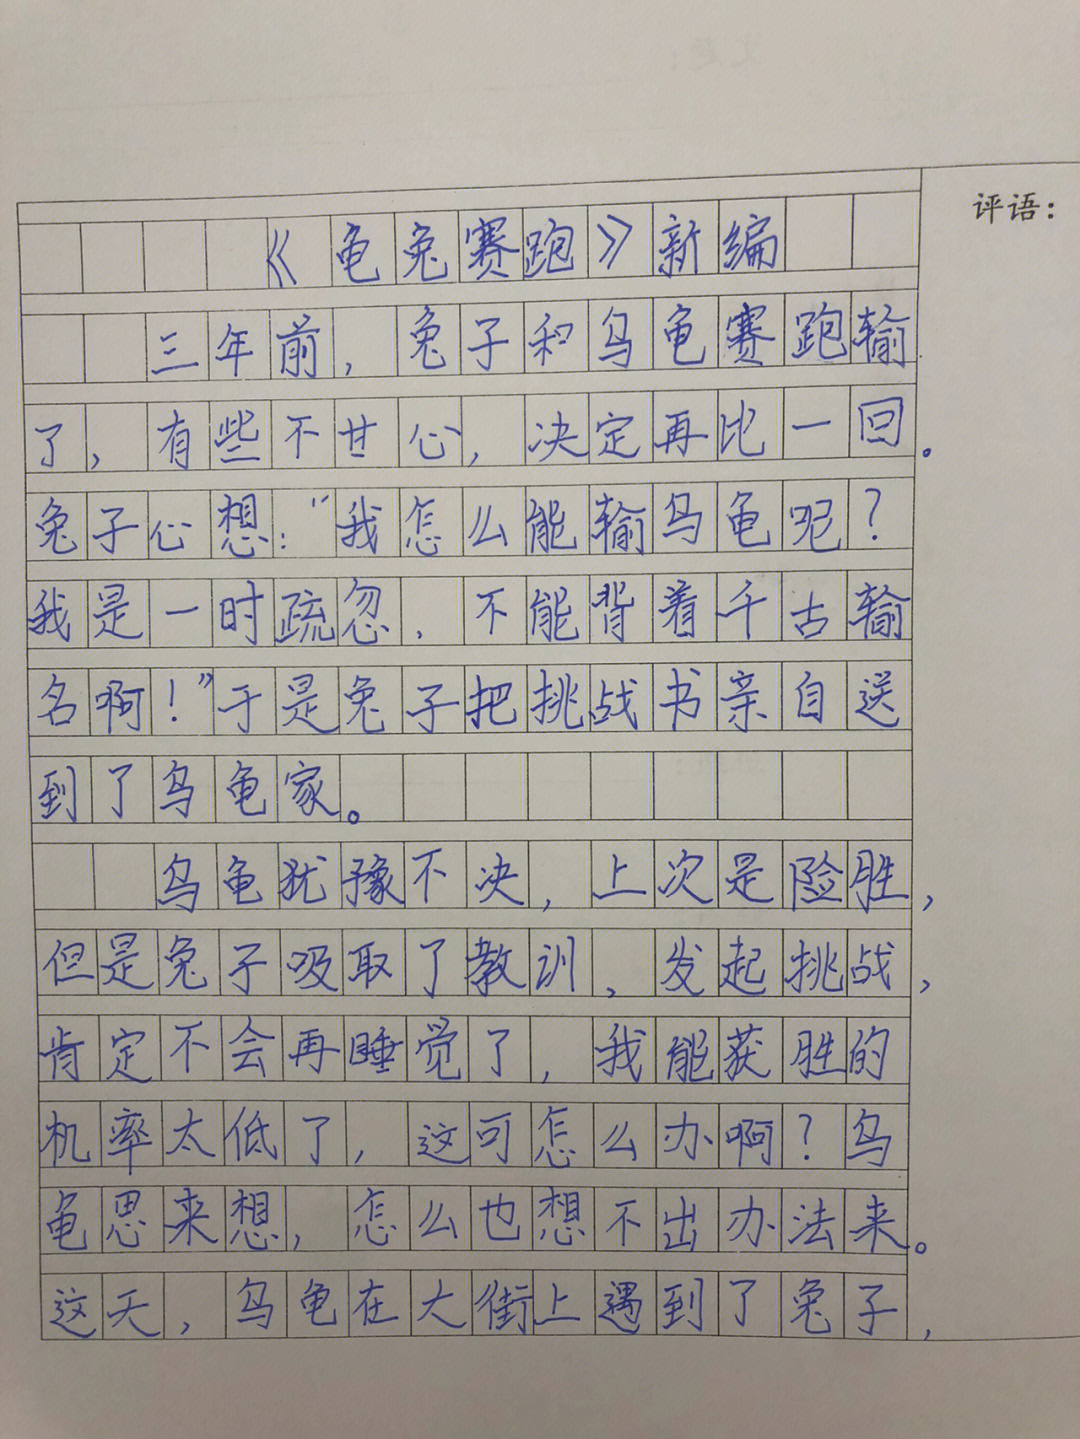 评语：
《龟兔赛跑》新编
三年前，兔子和乌龟赛跑输
了，有些不甘心，决定再比一回。
兔子心想："我怎么能输乌龟呢？
我是一时疏忽，不能背着千古输
名啊！"于是兔子把挑战书亲自送
到了乌龟家。
乌龟犹豫不决，上次是险胜，
但是兔子吸取了教训，发起挑战，
肯定不会再睡觉了，我能获胜的
机率太低了，这可怎么办啊？乌
龟思来想，怎么也想不出办法来。
这天，乌龟在大街上遇到了兔子，